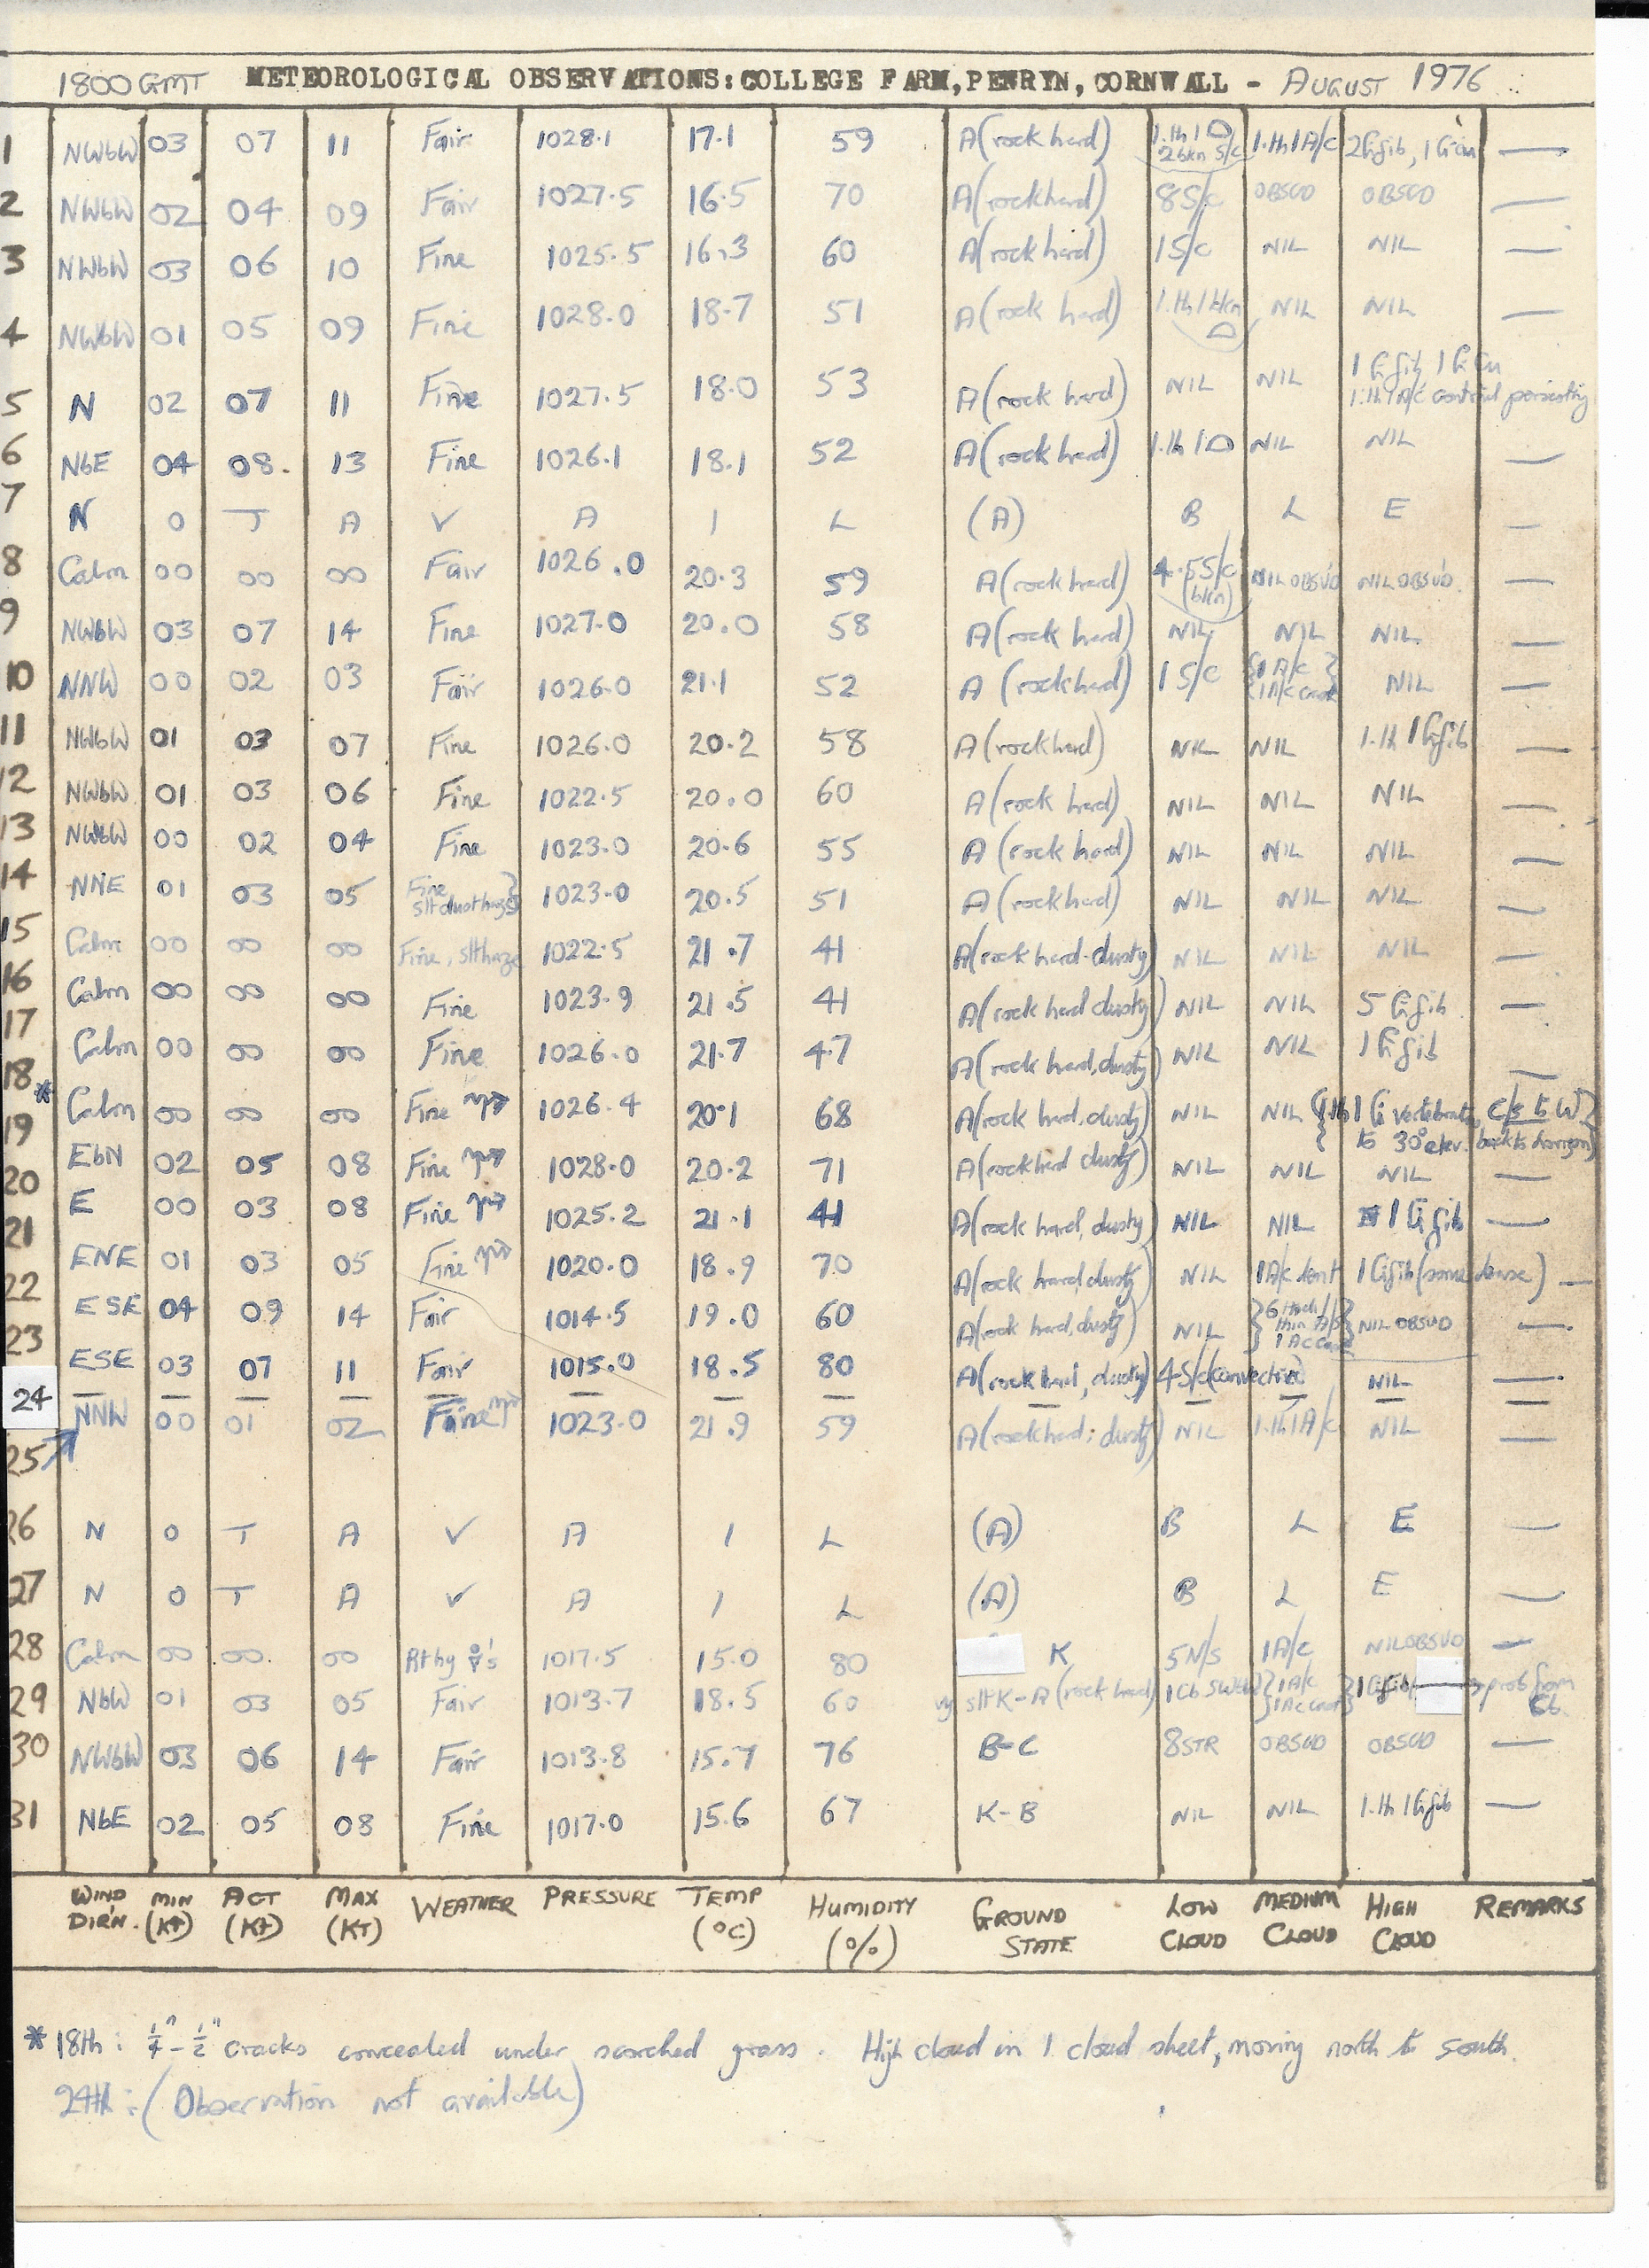 1800 GMT METEOROLOGICAL OBSERVATIONS: COLLEGE FARM, PENRYN, CORNWALL - AUGUST 1976
1 NWbW 03 07 11 Fair 1028.1 17.1 59 A (rock hard) 1.th 1 2 bkn S/c 1.th 1 A/c 2 Ci fib, 1 Ci cu —
2 NWbW 02 04 09 Fair 1027.5 16.5 70 A (rock hard) 8 S/c OBSCD OBSCD —
3 NWbW 03 06 10 Fine 1025.5 16.3 60 A (rock hard) 1 S/c NIL NIL —
4 NWbW 01 05 09 Fine 1028.0 18.7 51 A (rock hard) 1.th 1 bkn NIL NIL —
5 N 02 07 11 Fine 1027.5 18.0 53 A (rock hard) NIL NIL 1 Ci fib 1 Ci Cu 1.th 1 A/c contrail persisting
6 NbE 04 08. 13 Fine 1026.1 18.1 52 A (rock hard) 1.th 1 NIL NIL —
7 N O T A V A I L (A) B L E —
8 Calm 00 00 00 Fair 1026.0 20.3 59 A (rock hard) 4.5 S/c (bkn) NIL OBSVD NIL OBSVD. —
9 NWbW 03 07 14 Fine 1027.0 20.0 58 A (rock hard) NIL NIL NIL. —
10 NNW 00 02 03 Fair 1026.0 21.1 52 A (rock hard) 1 S/c {1 A/c } {1 A/c cast NIL —
11 NWbW 01 03 07 Fine 1026.0 20.2 58 A (rock hard) NIL NIL 1.th 1 Ci fib —
12 NWbW 01 03 06 Fine 1022.5 20.0 60 A (rock hard) NIL NIL NIL —
13 NWbW 00 02 04 Fine 1023.0 20.6 55 A (rock hard) NIL NIL NIL —
14 NNE 01 03 05 Fine slt dust haze} 1023.0 20.5 51 A (rock hard) NIL NIL NIL —
15 Calm 00 00 00 Fine, slt haze 1022.5 21.7 41 A (rock hard. dusty) NIL NIL NIL —
16 Calm 00 00 00 Fine 1023.9 21.5 41 A (rock hard dusty) NIL NIL 5 Ci fib. —
17 Calm 00 00 00 Fine 1026.0 21.7 47 A (rock hard, dusty) NIL NIL 1 Ci fib —
18 * Calm 00 00 00 Fine 1026.4 20.1 68 A (rock hard, dusty) NIL NIL {1.th 1 Ci vertebratus, c/s to W} { to 30° elev. back to horizon}
19 EbN 02 05 08 Fine 1028.0 20.2 71 A (rock hard dusty) NIL NIL NIL —
20 E 00 03 08 Fine 1025.2 21.1 41 A (rock hard, dusty) NIL NIL 1 Ci fib —
21 ENE 01 03 05 Fine 1020.0 18.9 70 A (rock hard, dusty) NIL 1 A/c lent 1 Ci fib (some dense) —
22 ESE 04 09 14 Fair 1014.5 19.0 60 A (rock hard, dusty) NIL }6 thick/ thin A/s 1 Ac Cast} NIL OBSVD —
23 ESE 03 07 11 Fair 1015.0 18.5 80 A (rock hard, dusty) 4 S/c (convective) NIL —
24 — — — — — — — — — — — — —
25 NNW 00 01 02 Fine 1023.0 21.9 59 A (rock hard; dusty) NIL 1.th 1 A/c NIL —
26 N O T A V A I L (A) B L E —
27 N O T A V A I L (A) B L E —
28 Calm 00 00. 00 Rthy 's 1017.5 15.0 80 K 5 N/S 1 A/c NIL OBSVD —
29 NbW 01 03 05 Fair 1013.7 18.5 60 vy slt K - A (rock hard) 1 Cb SW }1 A/c }1 Ac Cast} 1 Ci fib prob from Cb.
30 NWbW 03 06 14 Fair 1013.8 15.7 76 B-C 8 STR OBSCD OBSCD —
31 NbE 02 05 08 Fine 1017.0 15.6 67 K-B NIL NIL 1.th 1 Ci fib —
WIND DIR'N. MIN (KT) ACT (KT) MAX (KT) WEATHER PRESSURE TEMP (°C) HUMIDITY (%) GROUND STATE LOW CLOUD MEDIUM CLOUD HIGH CLOUD REMARKS
* 18th: ¼" - ½" cracks concealed under scorched grass. High cloud in 1 cloud sheet, moving north to south.
24th: (Observation not available)